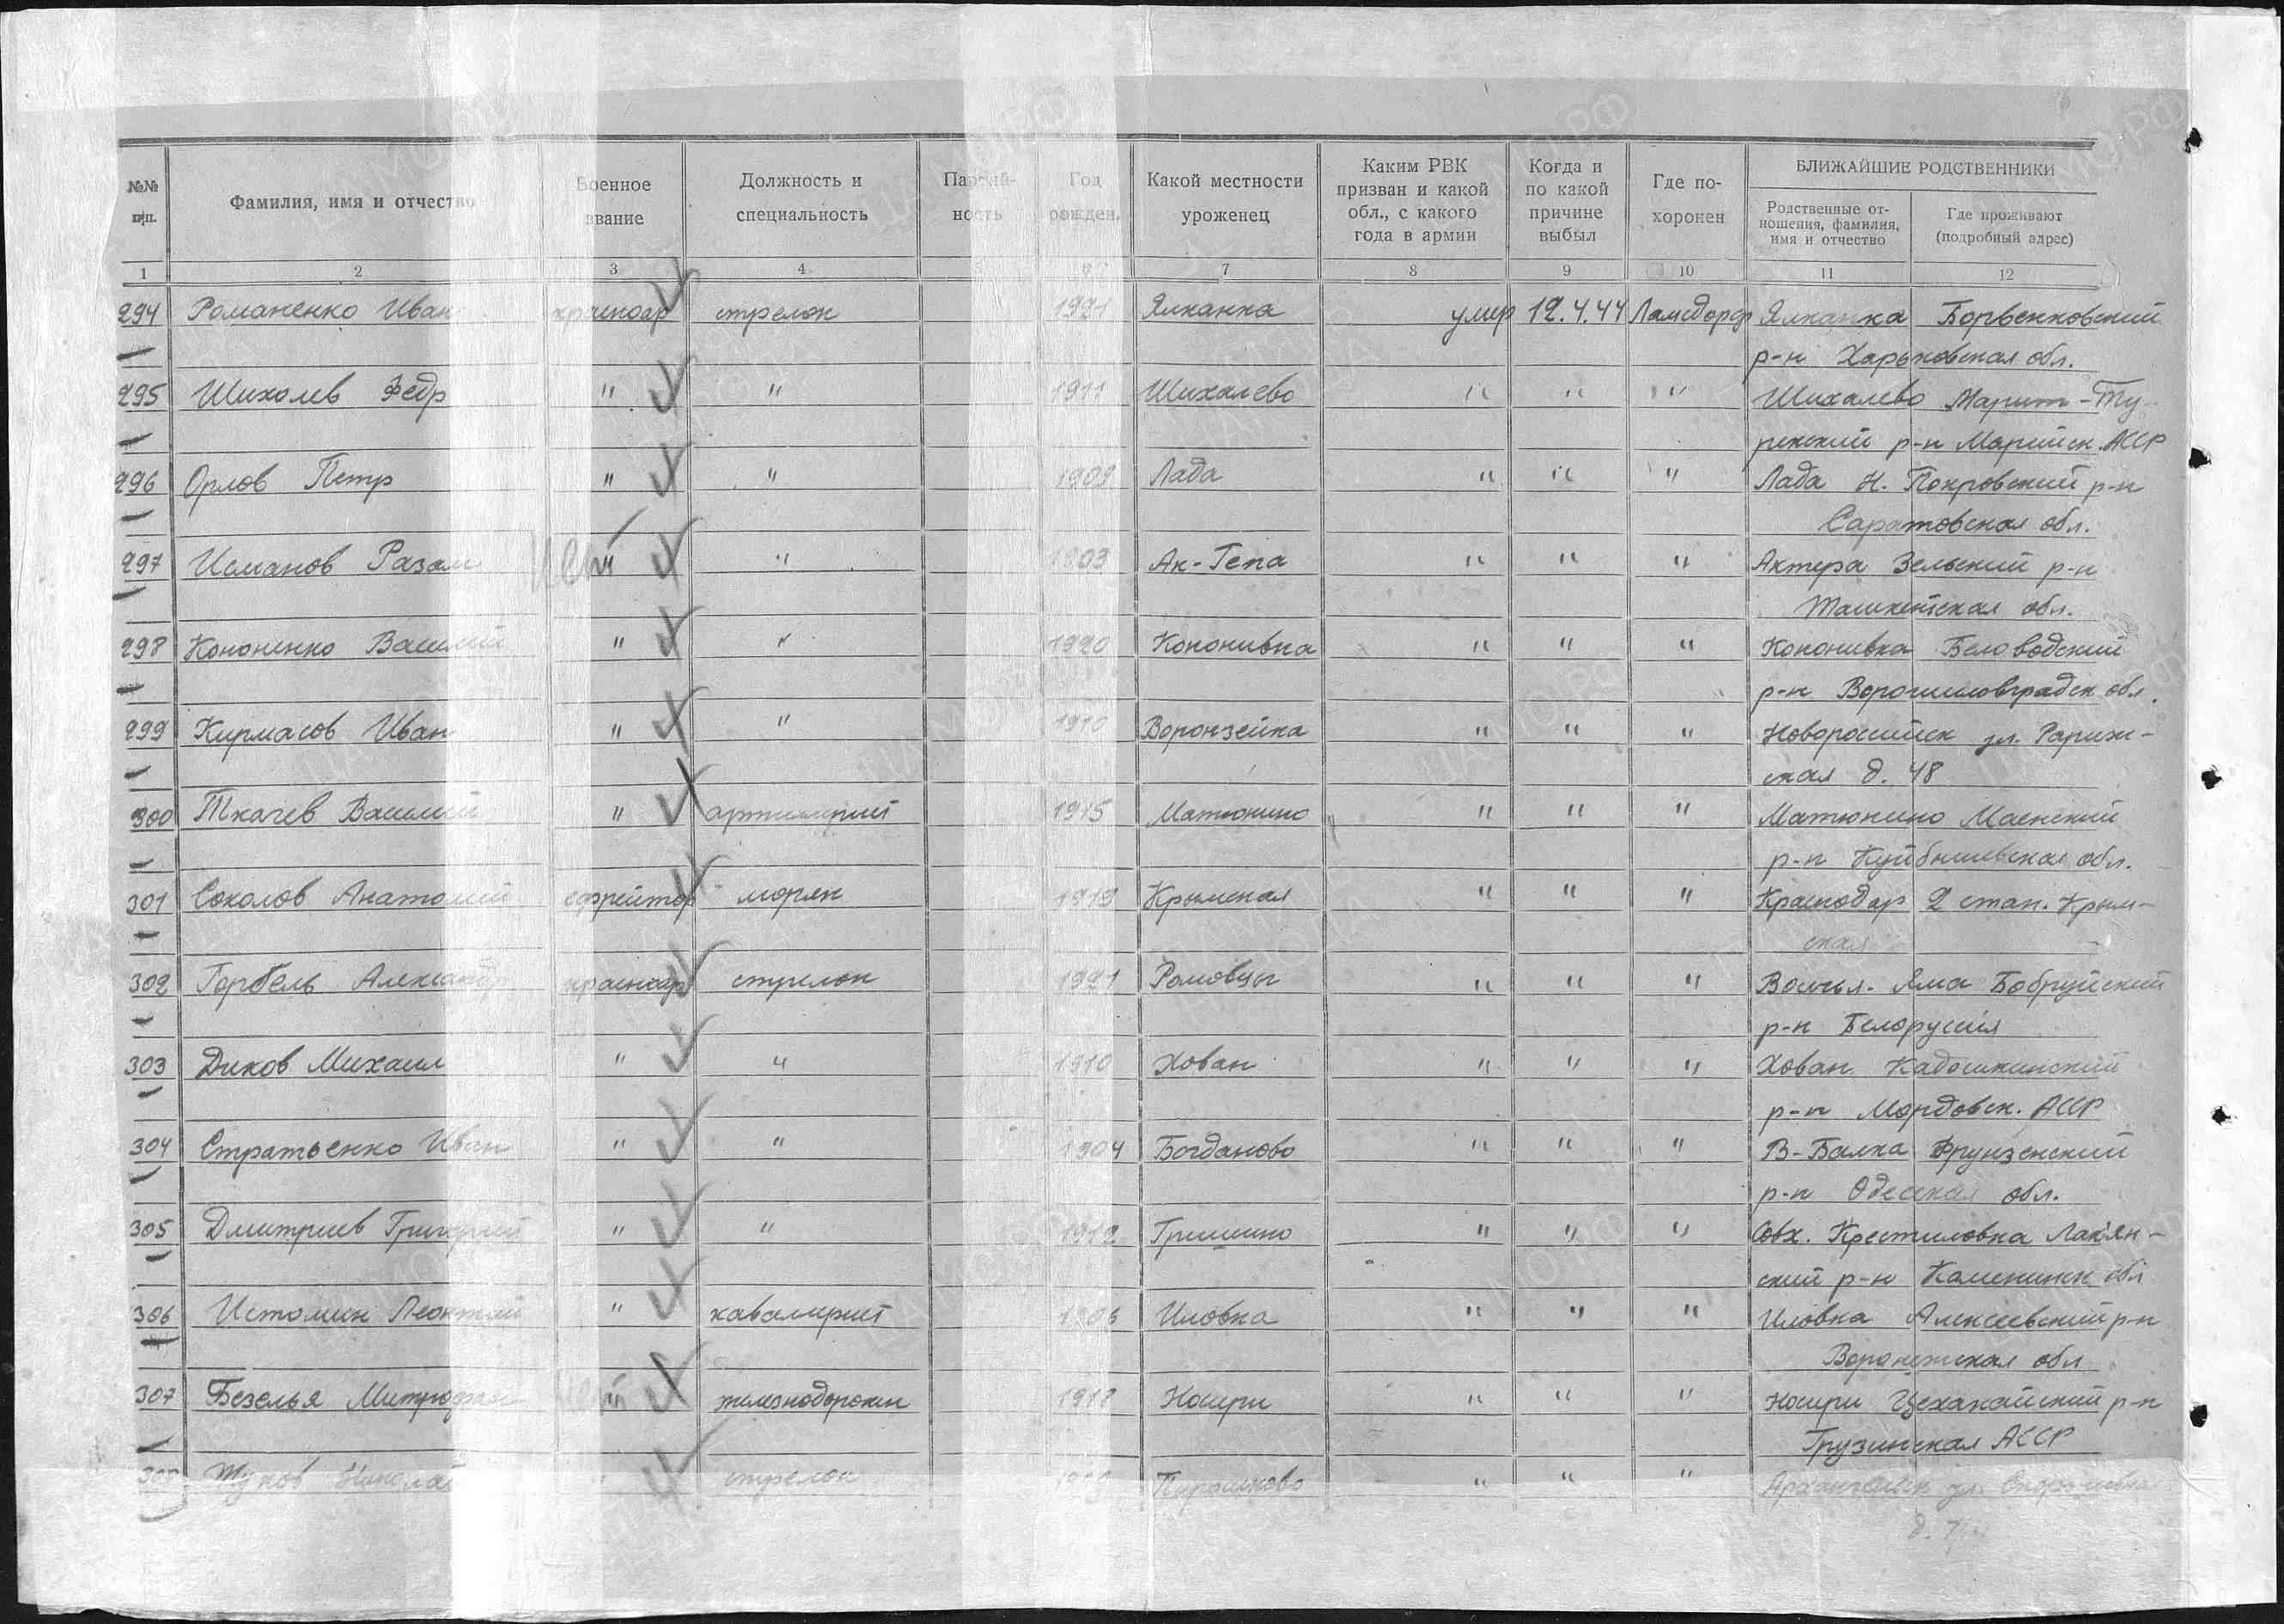 №№ п/п.
Фамилия, имя и отчество
Военное звание
Должность и специальность
Партий-ность
Год рожден.
Какой местности уроженец
Каким РВК призван и какой обл., с какого года в армии
Когда и по какой причине выбыл
Где по-хоронен
БЛИЖАЙШИЕ РОДСТВЕННИКИ
Родственные от-ношения, фамилия, имя и отчество
Где проживают (подробный адрес)
1 2 3 4 7 8 9 10 11 12
294 Романенко Иван красноар стрелок 1921 Ялканка умер 12.4.44 Ламсдорф Ялканка Борвенковский
р-н Харьковская обл.
295 Шихолев Федр " " 1911 Шихалево " " " Шихалево Марит-Ту-
рекский р-н Марийск. АССР
296 Орлов Петр " " 1909 Лада " " " Лада Н. Покровский р-н
Саратовская обл.
297 Исманов Разам " 1903 Ак-Тепа " " " Актера Зельский р-н
Ташкентская обл.
298 Кононенко Василий " " 1920 Кононивка " " " Кононивка Беловодский
р-н Ворошиловградск обл.
299 Кирмасов Иван " " 1910 Воронзейка " " " Новоросийск ул. Париж-
ская д. 48
300 Ткачев Василий " артилерист 1915 Матюнино " " " Матюнино Маенский
р-н Куйбишевская обл.
301 Соколов Анатолий ефрейтор моряк 1919 Крымская " " " Краснодар 2 стан. Крым-
ская
302 Горбель Александр красноар стрелок 1921 Ромовцы " " " Волчья-Яма Бобруйский
р-н Белорусия
303 Диков Михаил " " 1910 Хован " " " Хован Кадошкинский
р-н Мордовск. АССР
304 Стратьенко Иван " " 1904 Богданово " " " В-Балка Фрунзенский
р-н Одесская обл.
305 Дмитриев Григорий " " 1912 Гришино " " " Совх. Крестиловка
ский р-н обл
306 Истомин Леонтий " кавалерист 1906 Иловка " " " Иловка Алексеевский р-н
Воронежская обл
307 Безелья Митрофан " железнодорожн 1918 Носири " " " Носири Цехакайский р-н
Грузинская АССР
308 Жуков Николай " стрелок " " " Архангельск ул.